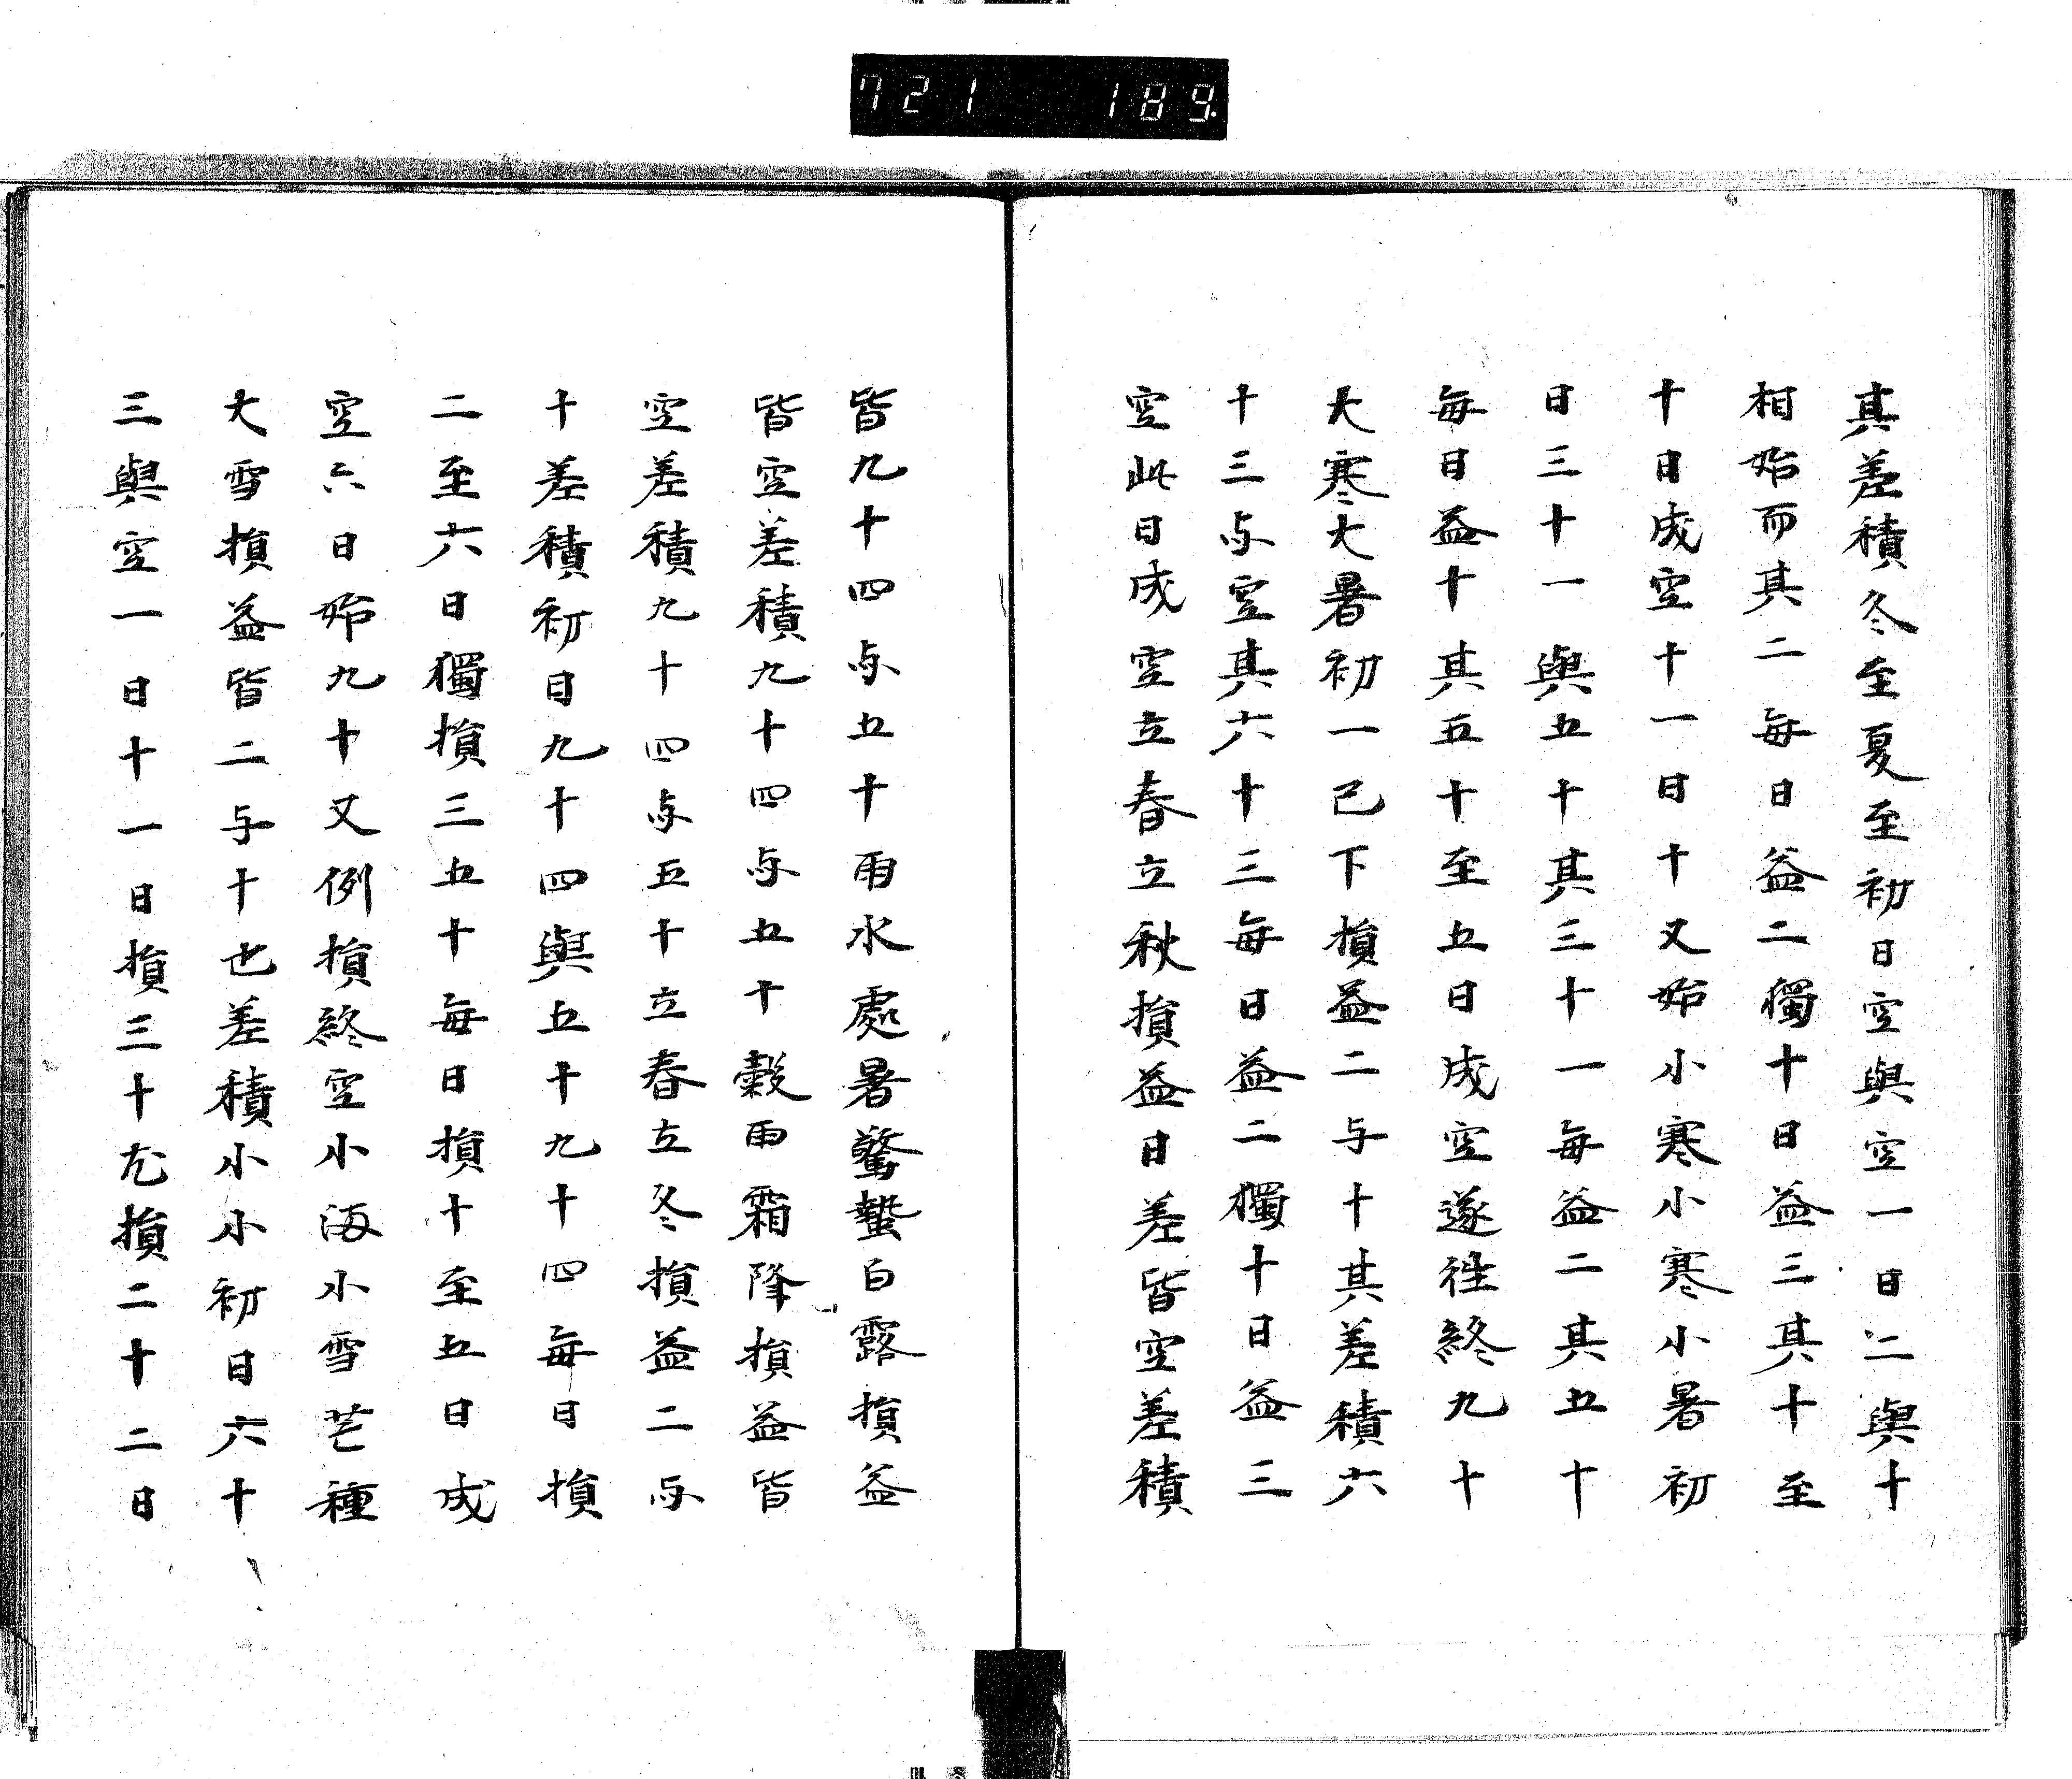 721 189.
其差積冬至夏至初日空與空一日二與十
相始而其二每日益二獨十日益三其十至
十日成空十一日十又始小寒小寒小暑初
日三十一與五十其三十一每益二其五十
每日益十其五十至五日成空遂徃終九十
大寒大暑初一己下損益二与十其差積六
十三与空其六十三每日益二獨十日益三
空此日成空立春立秋損益日差皆空差積
皆九十四与五十雨水處暑驚蟄白露損益
皆空差積九十四与五十穀雨霜降損益皆
空差積九十四与五十立春立冬損益二与
十差積初日九十四與五十九十四每日損
二至六日獨損三五十每日損十至五日成
空六日始九十又例損終空小滿小雪芒種
大雪損益皆二与十也差積小小初日六十
三與空一日十一日損三十左損二十二日